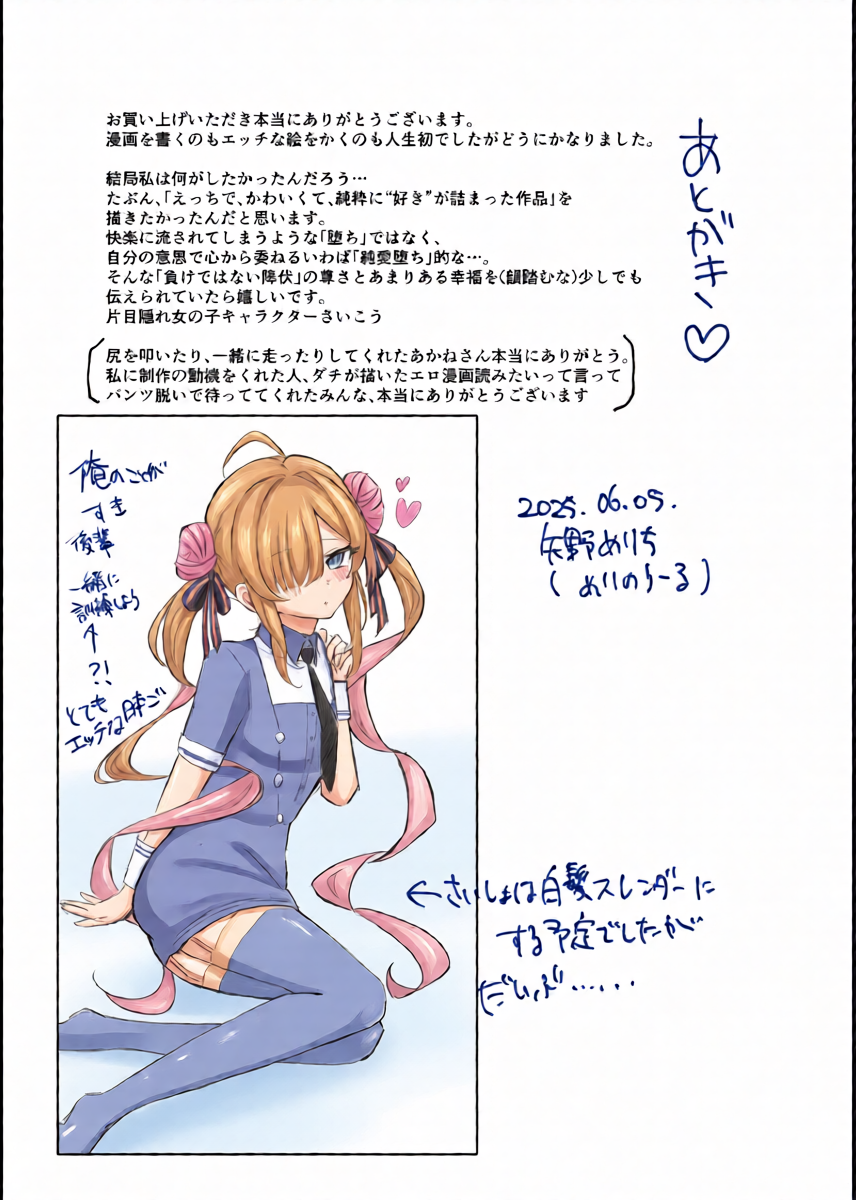 あとがき♡
お買い上げいただき本当にありがとうございます。
漫画を書くのもエッチな絵をかくのも人生初でしたがどうにかなりました。
結局私は何がしたかったんだろう…
たぶん、「えっちで、かわいくて、純粋に“好き”が詰まった作品」を
描きたかったんだと思います。
快楽に流されてしまうような「堕ち」ではなく、
自分の意思で心から委ねるいわば「純愛堕ち」的な…。
そんな「負けではない降伏」の尊さとあまりある幸福を(韻踏むな)少しでも
伝えられていたら嬉しいです。
片目隠れ女の子キャラクターさいこう
尻を叩いたり、一緒に走ったりしてくれたあかねさん本当にありがとう。
私に制作の動機をくれた人、ダチが描いたエロ漫画読みたいって言って
パンツ脱いで待っててくれたみんな、本当にありがとうございます
俺のことが
すき
後輩
一緒に
訓練しよう
?!
とても
エッチな
2025.06.05.
矢野めりち
(めりのらーる)
←さいしょは白髪スレンダーに
する予定でしたが
だいぶ......